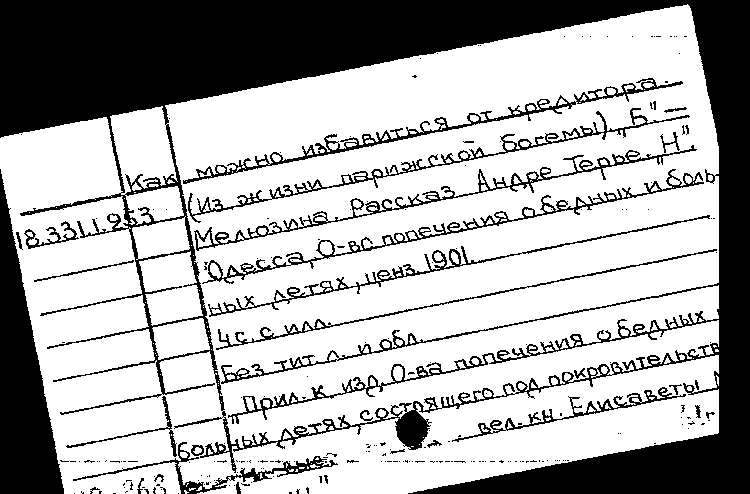 Как можно избавиться от кредитора.
(Из жизни парижской богемы). „Б." —
18.331.1.953
Мелюзина. Рассказ Андре Терье. „Н".
Одесса, О-во попечения о бедных и боль-
ных детях, ценз. 1901.
4 с. с илл.
Без тит. л. и обл.
„Прил. к изд. О-ва попечения о бедных
больных детях, состоящего под покровительств
вел. кн. Елисаветы